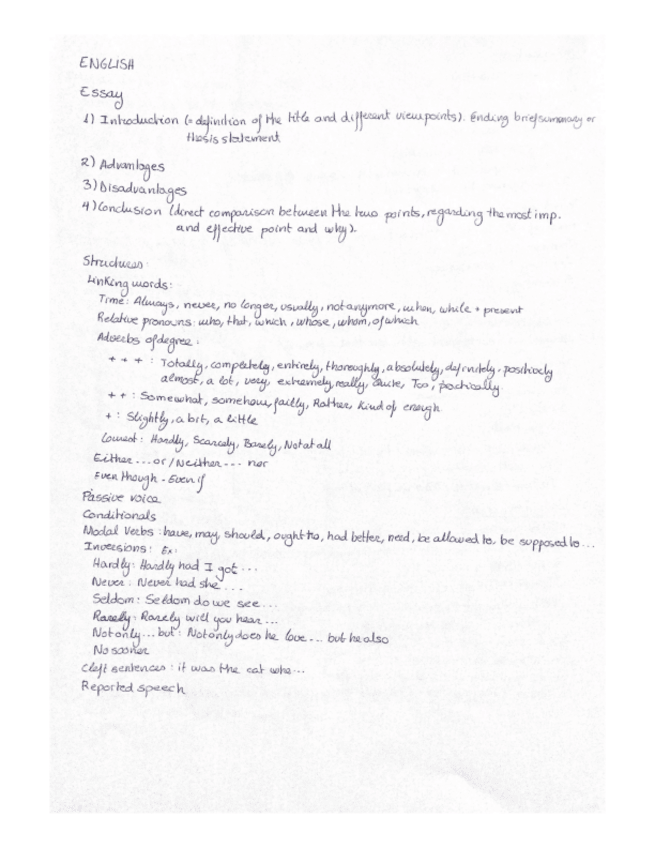 ENGLISH
Essay
1) Introduction (= definition of the title and different viewpoints). Ending brief summary or
thesis statement
2) Advantages
3) Disadvantages
4) Conclusion (direct comparison between the two points, regarding the most imp.
and effective point and why).
Structures:
Linking words:
Time: Always, never, no longer, usually, not anymore, when, while + present
Relative pronouns: who, that, which, whose, whom, of which
Adverbs of degree:
+ + + : Totally, completely, entirely, thoroughly, absolutely, definitely, positively
almost, a lot, very, extremely, really, Quite, Too, practically
+ + : Somewhat, somehow, fairly, Rather, Kind of enough
+ : Slightly, a bit, a little
Lowest: Hardly, Scarcely, Barely, Not at all
Either ... or / Neither --- nor
Even though - Even if
Passive voice
Conditionals
Modal Verbs: have, may, should, ought to, had better, need, be allowed to, be supposed to ...
Inversions: Ex:
Hardly: Hardly had I got ...
Never: Never had she ...
Seldom: Seldom do we see ...
Rarely: Rarely will you hear ...
Not only ... but: Not only does he love ... but he also
No sooner
Cleft sentences: it was the cat who ...
Reported speech